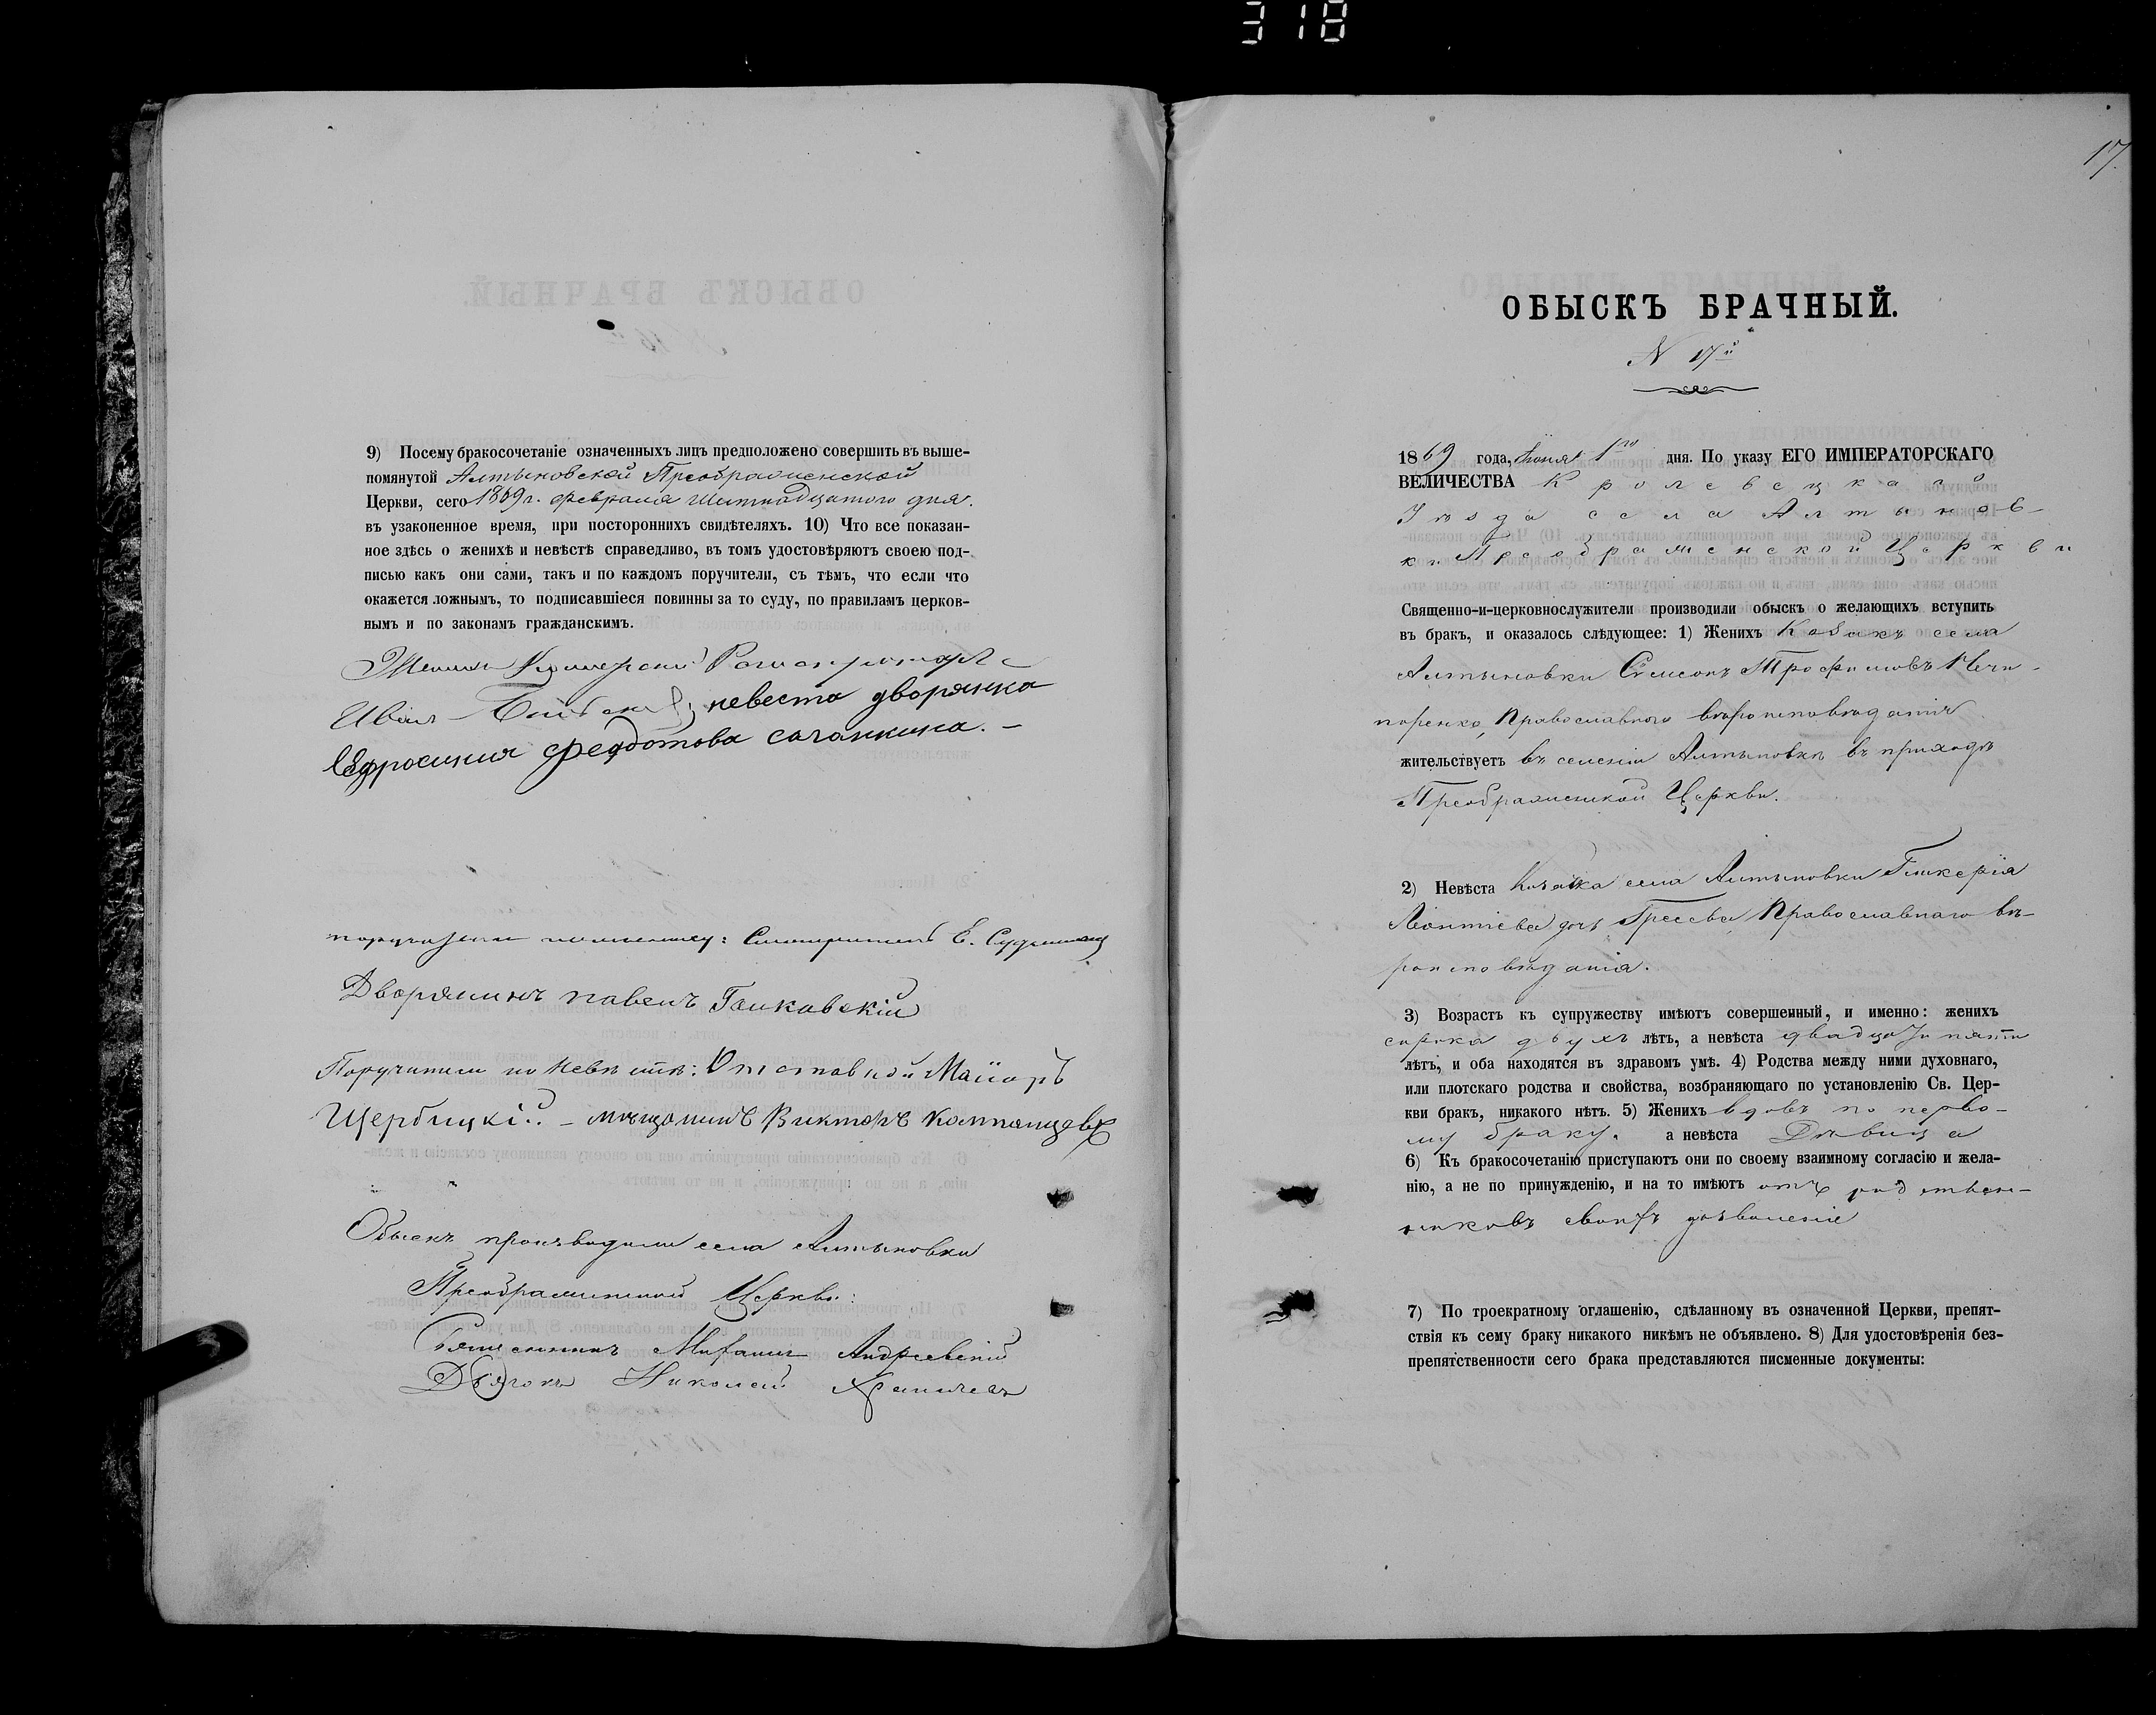 318
9) Посему бракосочетаніе означенныхъ лицъ предположено совершить въ выше-
помянутой Алтыновской Преображенской
Церкви, сего 1869 г. февраля Шистнадцатого дня.
въ узаконенное время, при постороннихъ свидѣтеляхъ. 10) Что все показан-
ное здѣсь о женихѣ и невѣстѣ справедливо, въ томъ удостовѣряютъ своею под-
писью какъ они сами, такъ и по каждомъ поручители, съ тѣмъ, что если что
окажется ложнымъ, то подписавшіеся повинны за то суду, по правиламъ церков-
нымъ и по законамъ гражданскимъ.
Женихъ
Иванъ невеста дворянка
Ефросиния Федотова
Е.
Дворянинъ павелъ
Поручители по невѣстѣ: Отставной Маіоръ
Щербицкій. – мѣщанинъ Викторъ
Обыскъ производили села Алтыновки
Преображенской Церкви:
Священникъ Михаилъ Андреевскій
Дьячокъ Николай
17.
ОБЫСКЪ БРАЧНЫЙ.
N 17й
1869 года, Іюня 1го дня. По указу ЕГО ИМПЕРАТОРСКАГО
ВЕЛИЧЕСТВА Кролевецкаго
Уѣзда села Алтынов-
ки Преображенской Церкви
Священно-и-церковнослужители производили обыскъ о желающихъ вступить
въ бракъ, и оказалось слѣдующее: 1) Женихъ Козакъ села
Алтыновки Симеонъ Трофимовъ Ничи-
поренко, Православного вѣроисповѣданія
жительствуетъ въ селеніи Алтыновкѣ въ приходѣ
Преображенской Церкви.
2) Невѣста Козачка села Алтыновки Гликерія
Леонтіева дочь Православнаго вѣ-
роисповѣданія.
3) Возрастъ къ супружеству имѣютъ совершенный, и именно: женихъ
сорока двухъ лѣтъ, а невѣста двадцати пяти
лѣтъ, и оба находятся въ здравомъ умѣ. 4) Родства между ними духовнаго,
или плотскаго родства и свойства, возбраняющаго по установленію Св. Цер-
кви бракъ, никакого нѣтъ. 5) Женихъ вдовъ по перво-
му браку. а невѣста Дѣвица
6) Къ бракосочетанію приступаютъ они по своему взаимному согласію и жела-
нію, а не по принужденію, и на то имѣютъ отъ родствен-
никовъ своихъ дозволеніе
7) По троекратному оглашенію, сдѣланному въ означенной Церкви, препят-
ствія къ сему браку никакого никѣмъ не объявлено. 8) Для удостовѣренія без-
препятственности сего брака представляются писменные документы: